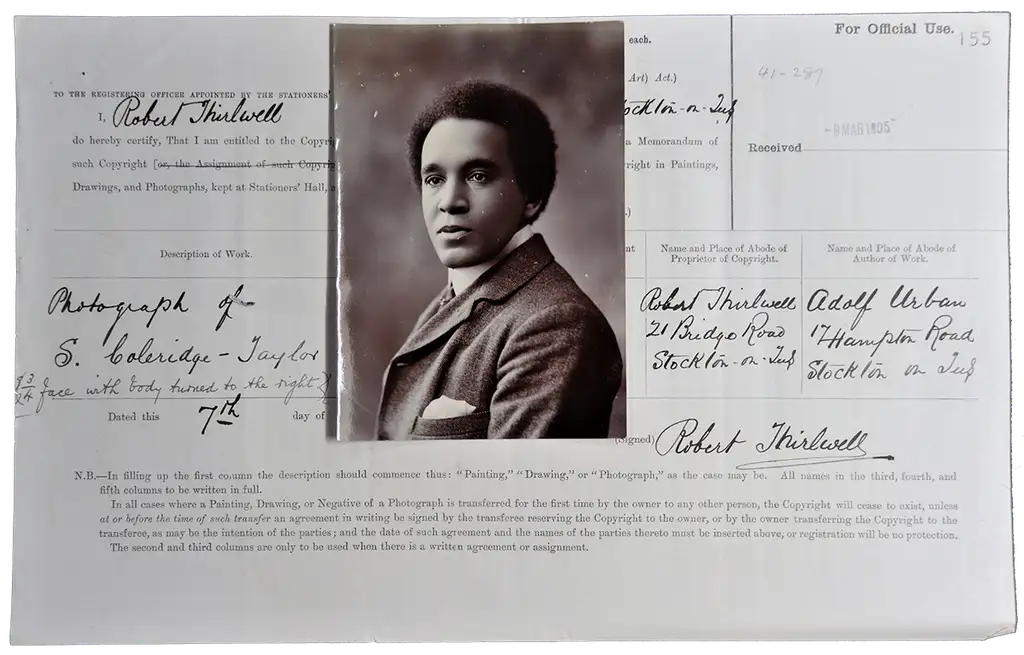 For Official Use.
155
each.
41-287
Art) Act.)
TO THE REGISTERING OFFICER APPOINTED BY THE STATIONERS'
I, Robert Thirlwell
Stockton-on-Tees
-8 MAR 1905
do hereby certify, That I am entitled to the Copyri
a Memorandum of
Received
such Copyright [or, the Assignment of such Copyri
right in Paintings,
Drawings, and Photographs, kept at Stationers' Hall,
.)
Description of Work.
nt
Name and Place of Abode of
Proprietor of Copyright.
Name and Place of Abode of
Author of Work.
Photograph of
S. Coleridge-Taylor
3/4 face with body turned to the right
Robert Thirlwell
21 Bridge Road
Stockton-on-Tees
Adolf Urban
17 Hampton Road
Stockton on Tees
Dated this 7th day of
(Signed) Robert Thirlwell
N.B.—In filling up the first column the description should commence thus: "Painting," "Drawing," or "Photograph," as the case may be. All names in the third, fourth, and
fifth columns to be written in full.
In all cases where a Painting, Drawing, or Negative of a Photograph is transferred for the first time by the owner to any other person, the Copyright will cease to exist, unless
at or before the time of such transfer an agreement in writing be signed by the transferee reserving the Copyright to the owner, or by the owner transferring the Copyright to the
transferee, as may be the intention of the parties; and the date of such agreement and the names of the parties thereto must be inserted above, or registration will be no protection.
The second and third columns are only to be used when there is a written agreement or assignment.